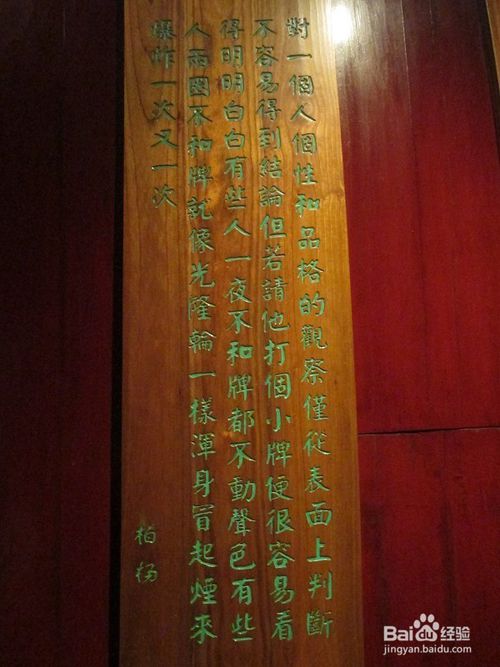 對一個人個性和品格的觀察僅從表面上判斷
不容易得到結論但若請他打個小牌便很容易看
得明明白白有些人一夜不和牌都不動聲色有些
人兩圈不和牌就像光隆輪一樣渾身冒起煙來
爆炸一次又一次
柏楊
Bai度经验
jingyan.baidu.com